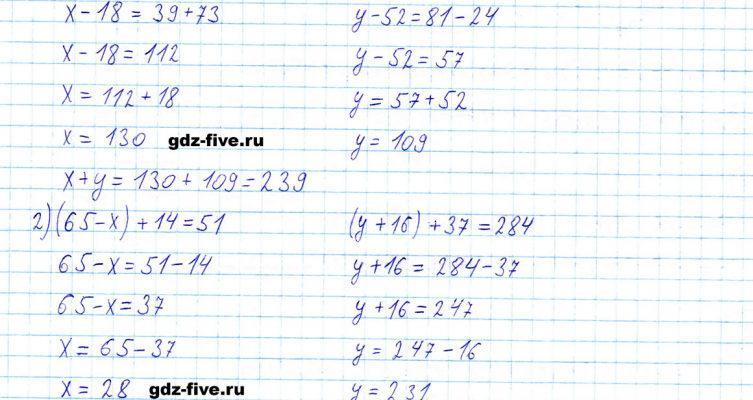 x-18 = 39+73
y-52=81-24
x-18=112
y-52=57
x=112+18
y=57+52
x=130 gdz-five.ru
y=109
x+y=130+109=239
2)(65-x)+14=51
(y+16)+37=284
65-x=51-14
y+16=284-37
65-x=37
y+16=247
x=65-37
y=247-16
x=28 gdz-five.ru
y=231